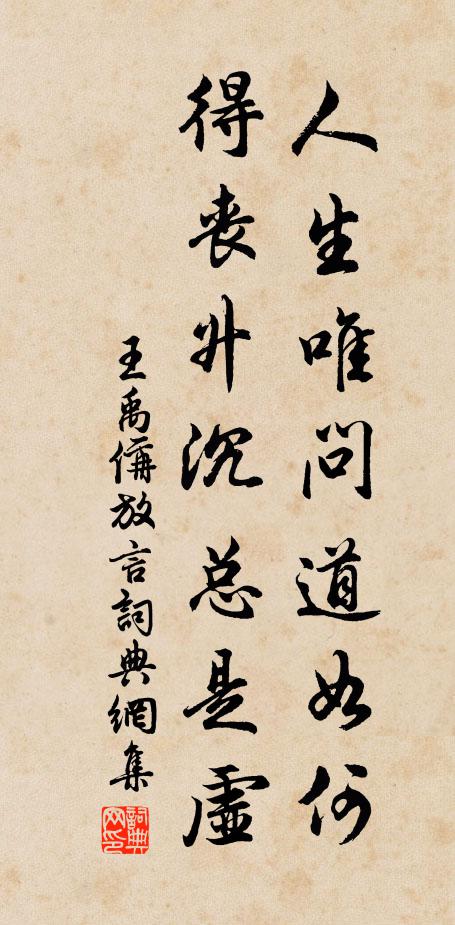 人生唯问道如何
得丧升沉总是虚
王禹偁放言詞典網集
詞典网印